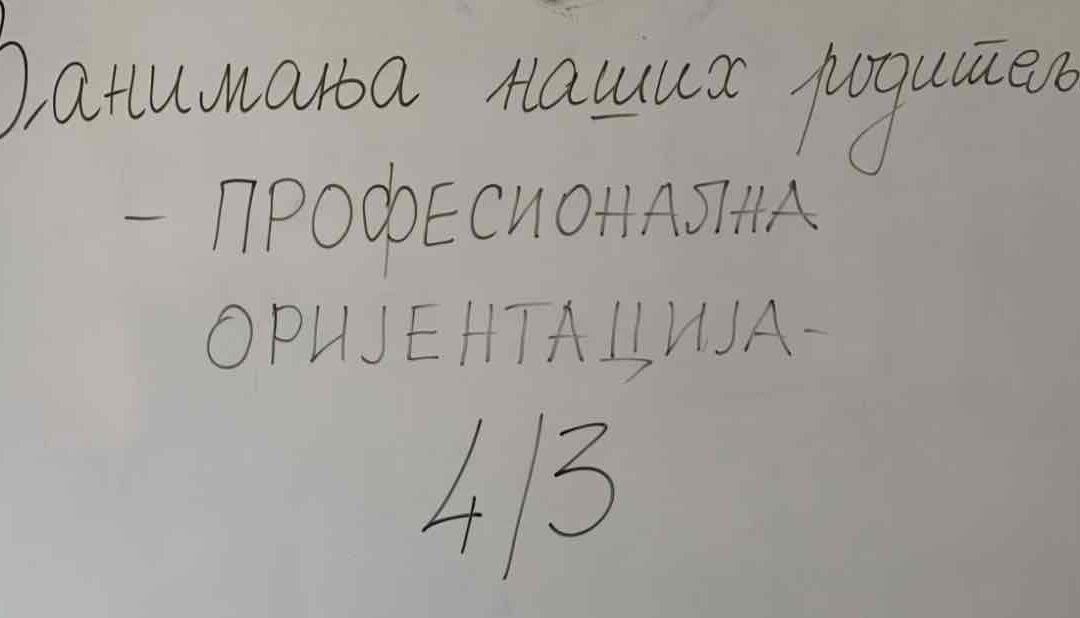 Занимања наших родитељ
- ПРОФЕСИОНАЛНА
ОРИЈЕНТАЦИЈА-
4/3